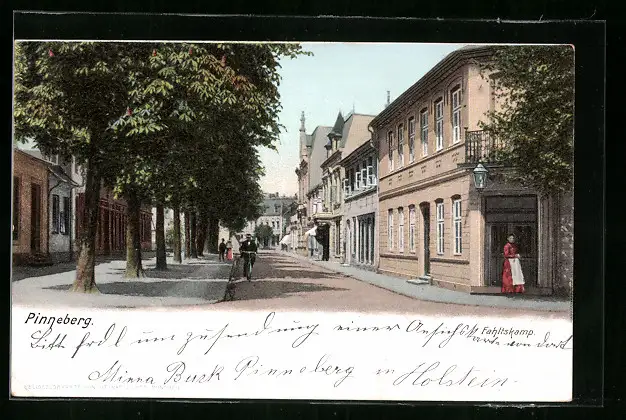 Pinneberg.
Fahltskamp.
Bitte frdl um zusendung einer Ansichtskarte von dort
Minna Busk Pinneberg in Holstein.